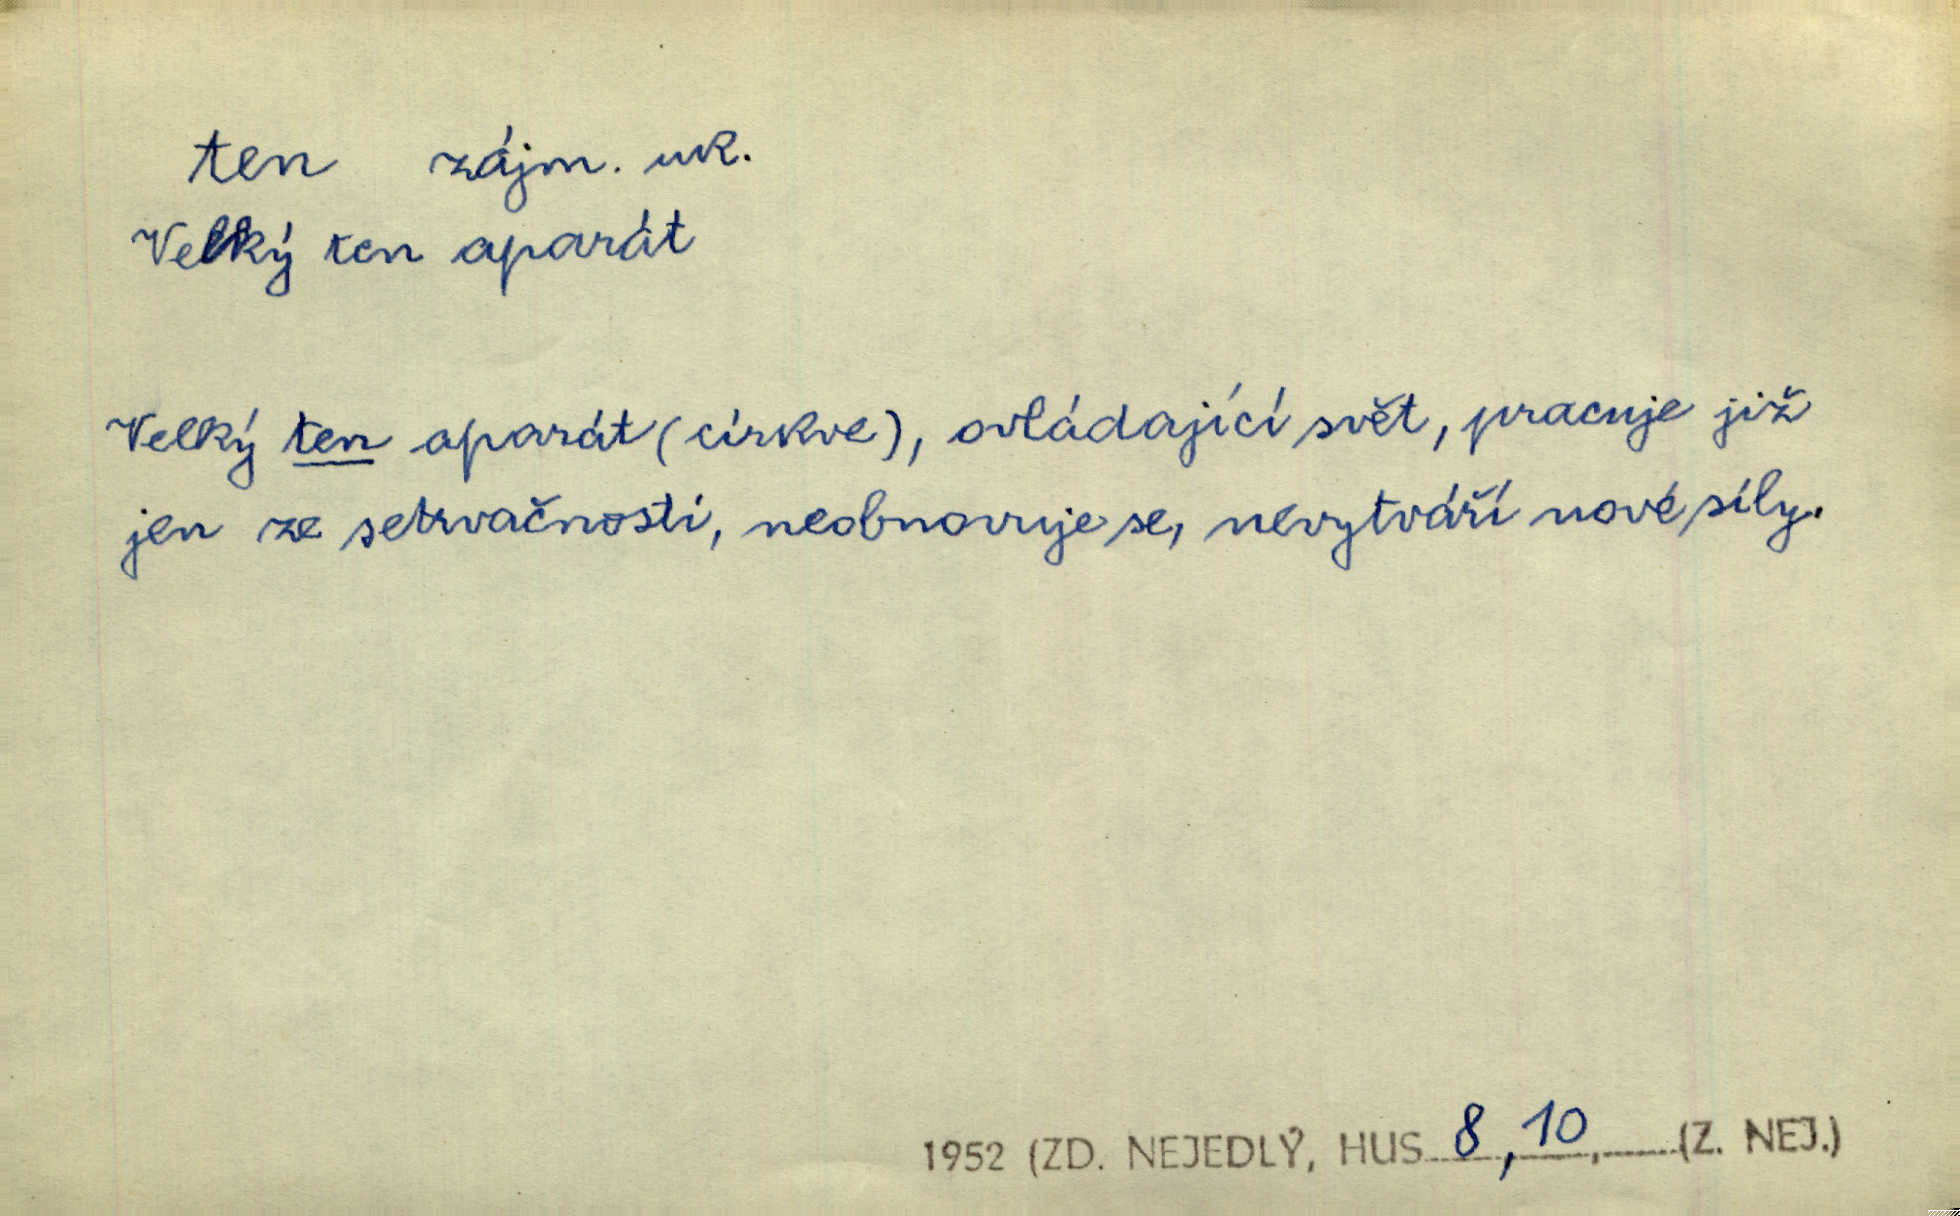 ten zájm. uk.
Velký ten aparát
Velký ten aparát (církve), ovládající svět, pracuje již
jen ze setrvačnosti, neobnovuje se, nevytváří nové síly.
1952 (ZD. NEJEDLÝ, HUS 8, 10, (Z. NEJ.)